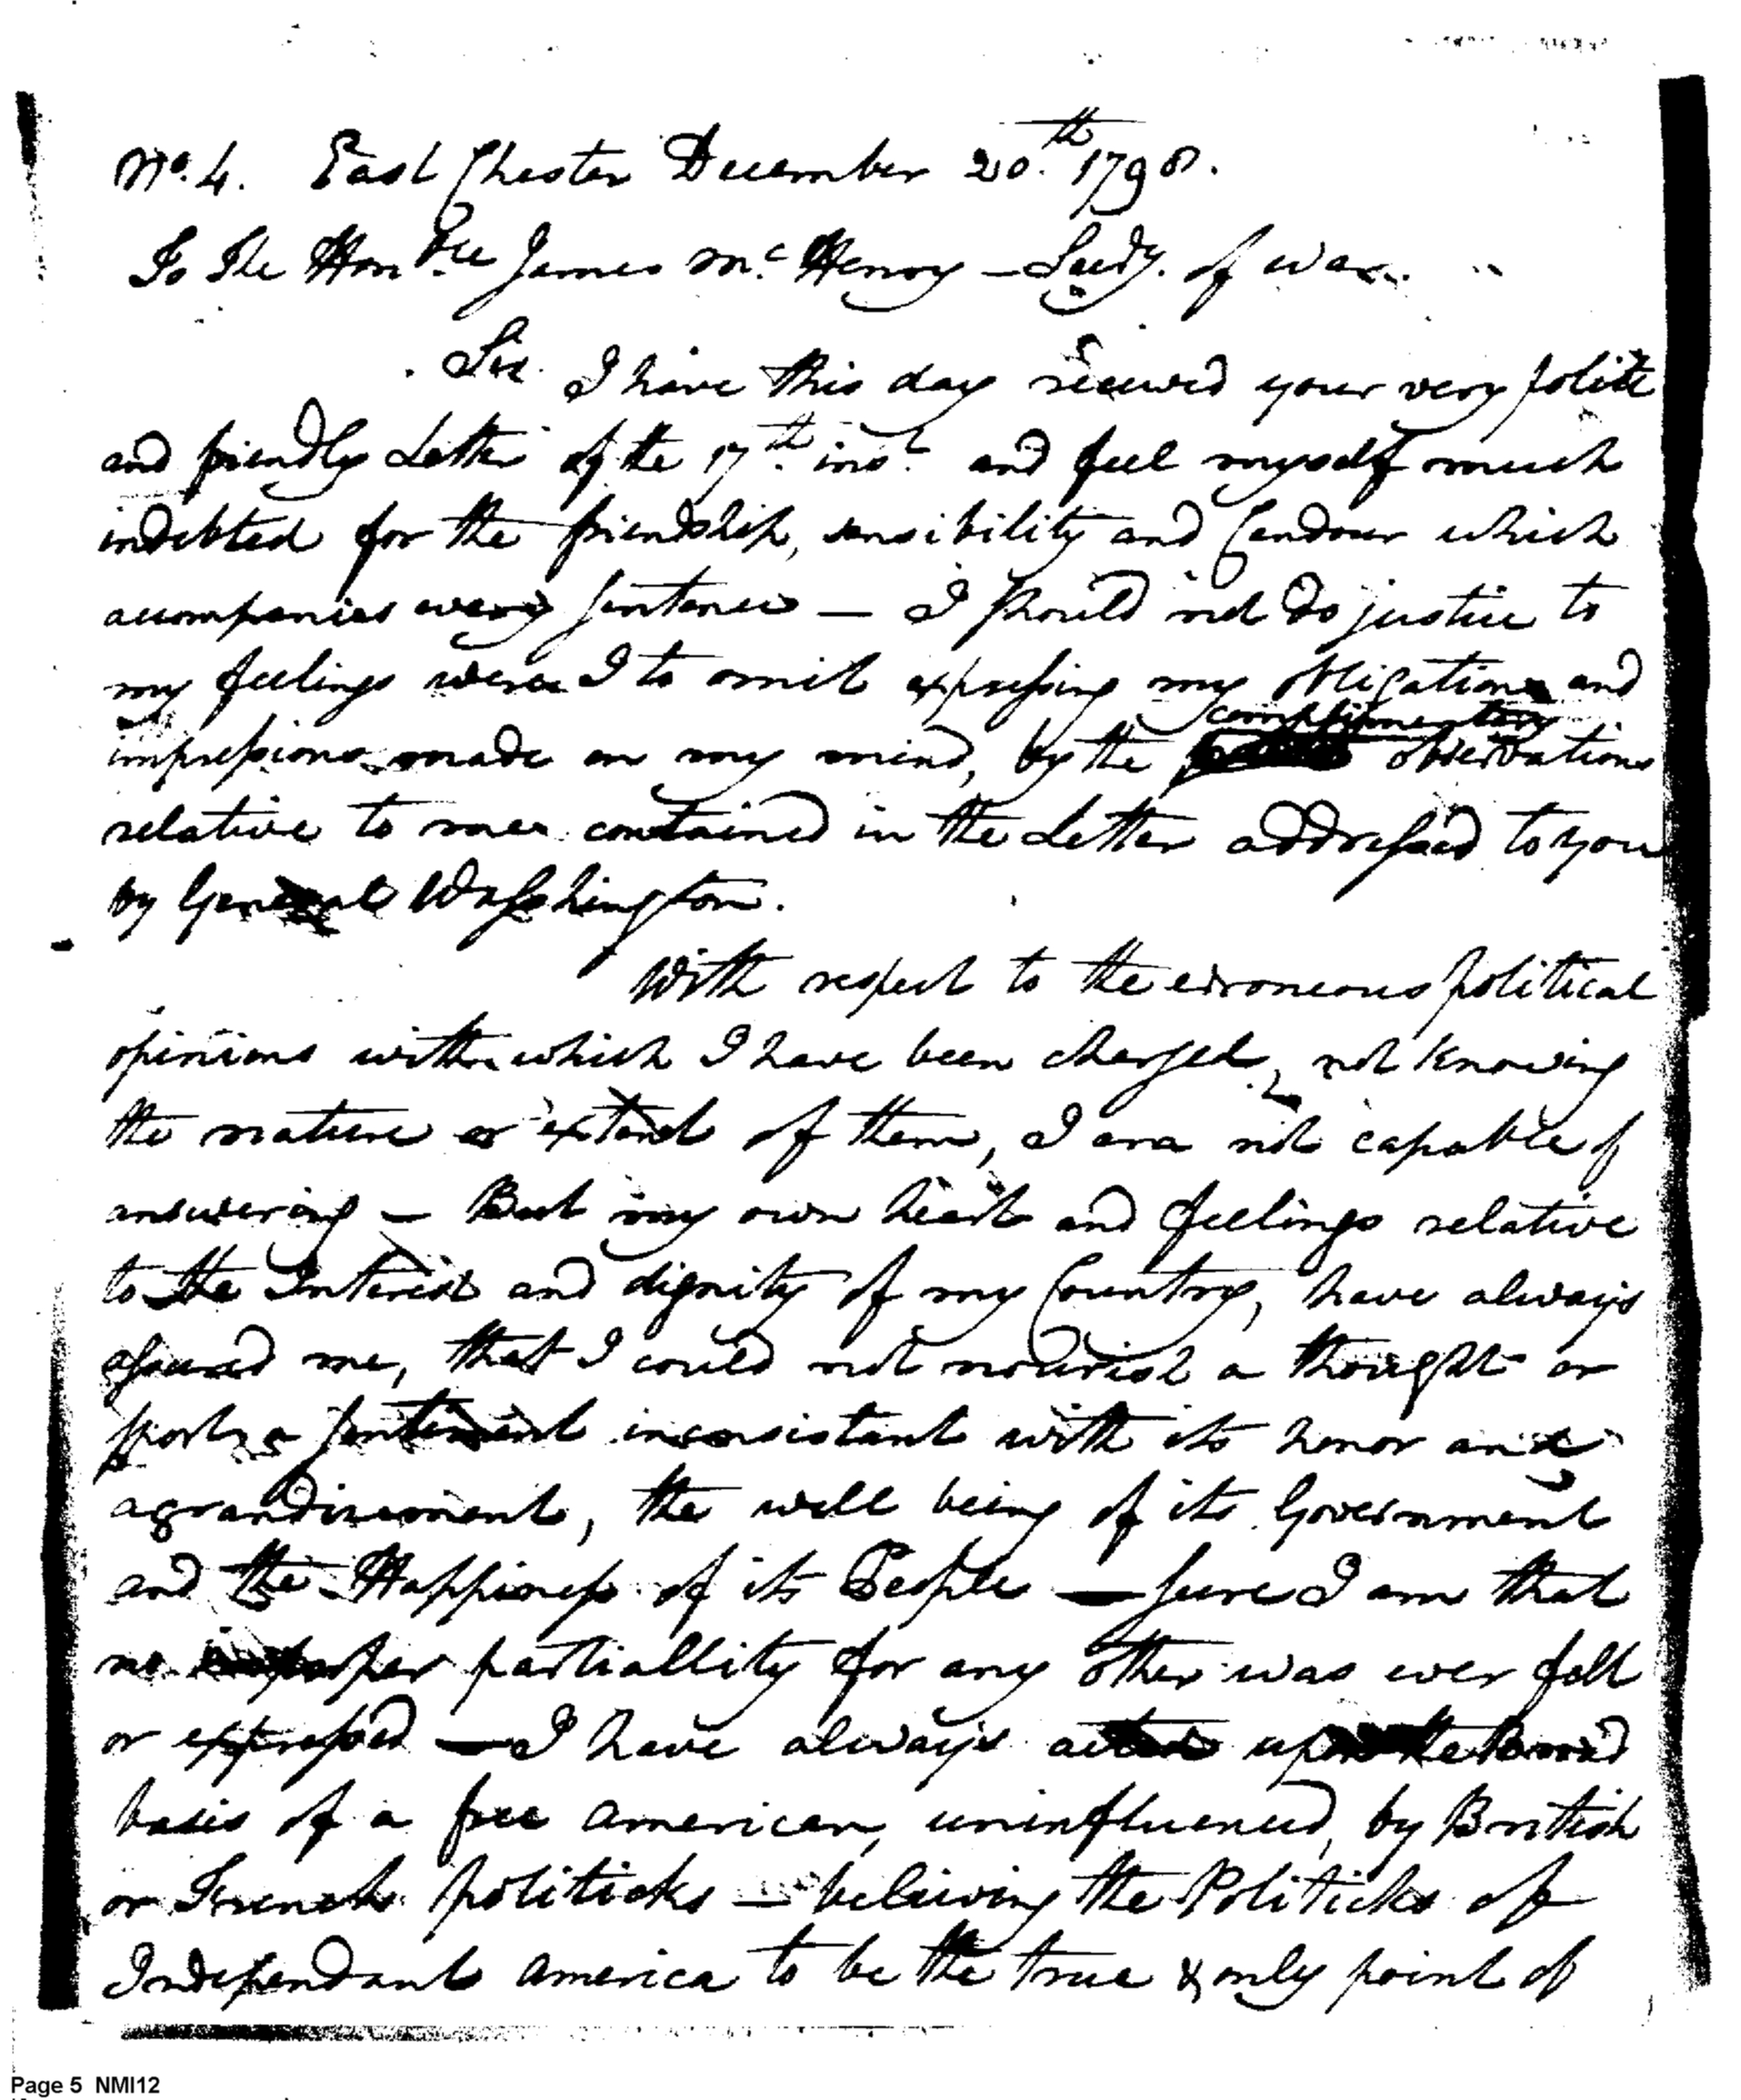 No. 4. East Chester December 20.th 1798.
To The Honble James Mc. Henry – Secdy. of war.
Sir. I have this day received your very polite
and friendly Letter of the 17th. inst. and feel myself much
indebted for the friendship, sensibility and Candour which
accompanies every sentence — I should not do justice to
my feelings were I to omit expressing my obligations and
complimentary
impressions made on my mind, by the observations
relative to me contained in the Letter addressed to you
by General Washington.
With respect to the erroneous political
opinions with which I have been charged, not knowing
the nature or extent of them, I am not capable of
answering – But my own heart and feelings relative
to the Interest and dignity of my Country, have always
assured me, that I could not nourish a thought or
a sentiment inconsistant with its honor and
agrandisement, the well being of its Government
and the Happiness of its People — sure I am that
no improper partiallity for any other was ever felt
or expressed — I have always acted upon the Broad
basis of a free american, uninfluenced, by British
or French politicks — beleiving the Politicks of
Independant America to be the true & only point of
Page 5 NMI12